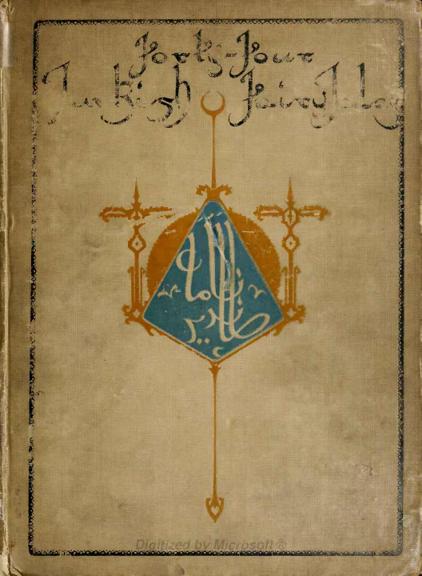 Forty-Four
Turkish Fairy Tales
Digitized by Microsoft®